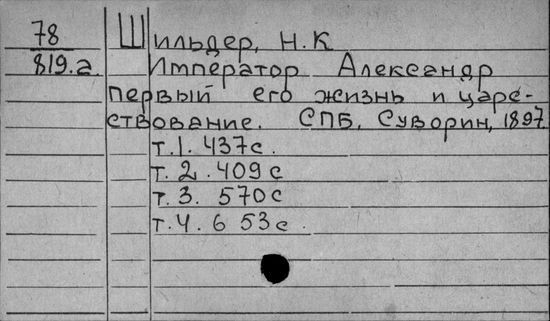 78 Шильдер, Н.К
819.а. Император Александр
первый его жизнь и царс-
ствование. СПБ, Суворин, 1897.
т.1. 437с.
т.2.409с
т.3. 570с
т.4.6 53с.